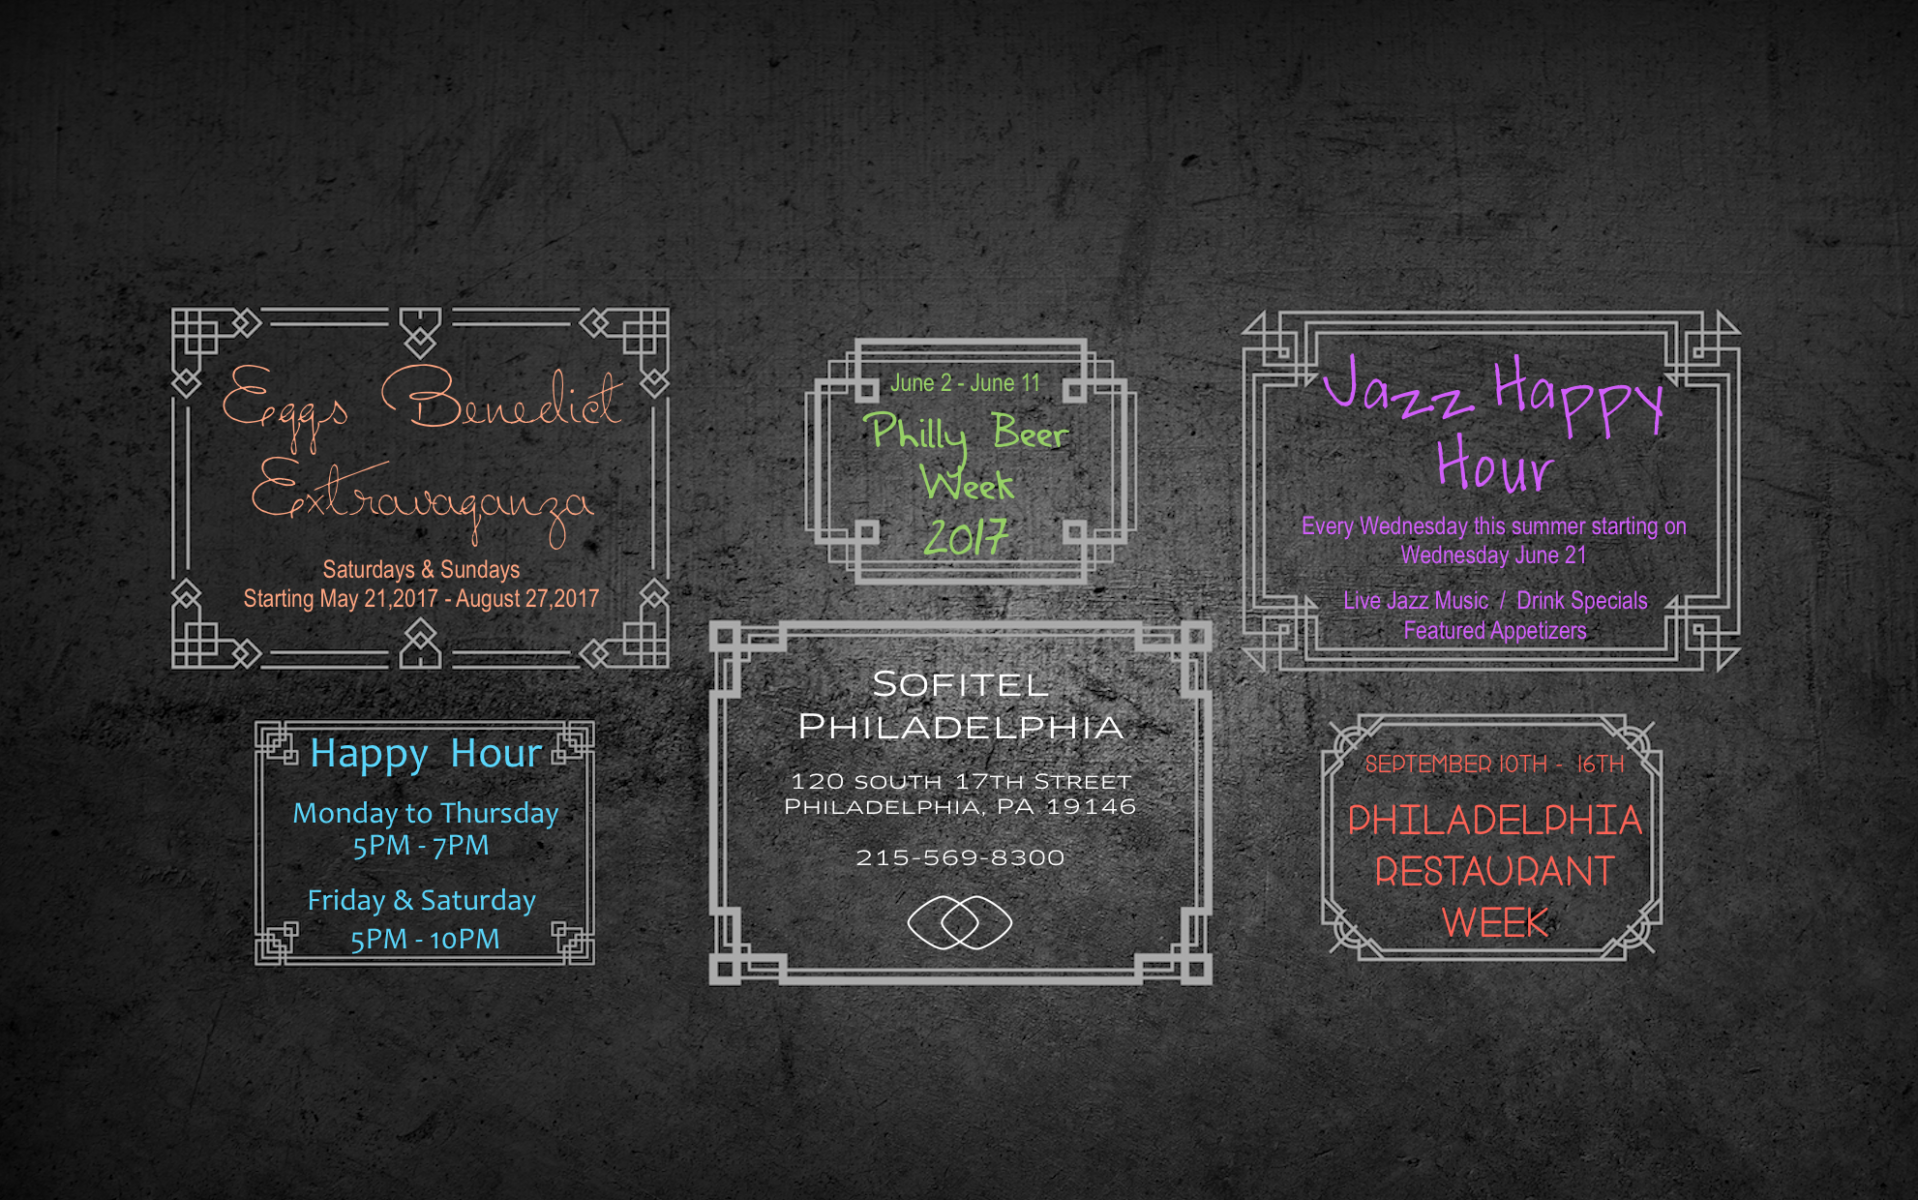 Eggs Benedict
Extravaganza
Saturdays & Sundays
Starting May 21,2017 - August 27,2017
June 2 - June 11
Philly Beer
Week
2017
Jazz Happy
Hour
Every Wednesday this summer starting on
Wednesday June 21
Live Jazz Music / Drink Specials
Featured Appetizers
Happy Hour
Monday to Thursday
5PM - 7PM
Friday & Saturday
5PM - 10PM
SOFITEL
PHILADELPHIA
120 SOUTH 17TH STREET
PHILADELPHIA, PA 19146
215-569-8300
SEPTEMBER 10TH - 16TH
PHILADELPHIA
RESTAURANT
WEEK